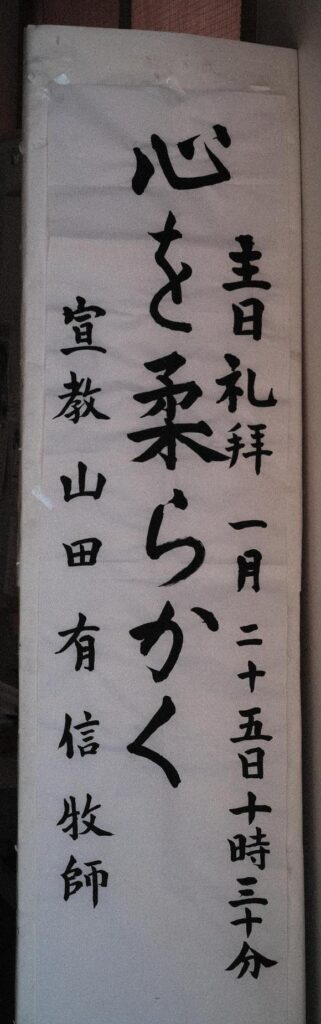 主日礼拝 一月二十五日十時三十分
心を柔らかく
宣教 山田有信牧師